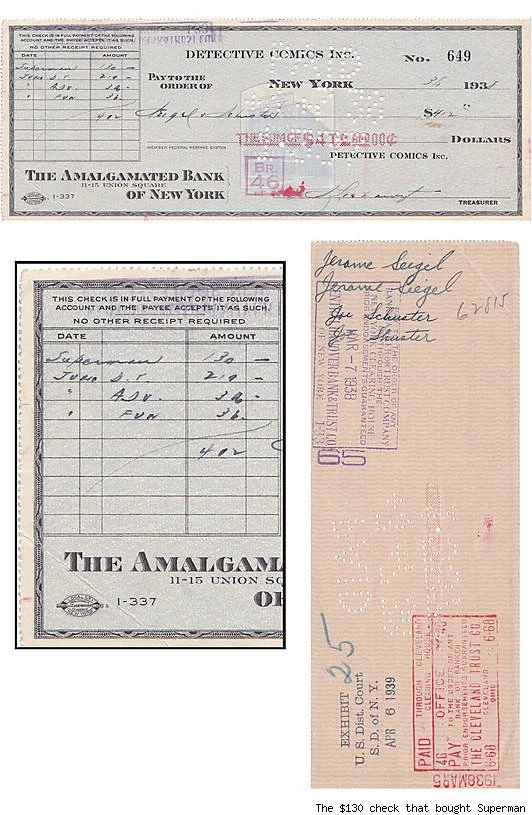 THIS CHECK IS IN FULL PAYMENT OF THE FOLLOWING
ACCOUNT AND THE PAYEE ACCEPTS IT AS SUCH.
NO OTHER RECEIPT REQUIRED
DATE AMOUNT
Superman 130 —
June D.C. 210 —
" ADV. 36 —
" FUN 36
402
DETECTIVE COMICS INC.
No. 649
PAY TO THE
ORDER OF
NEW YORK 3/1 1938
$412
THE SUM OF $412 AND 00 ¢
DOLLARS
MEMBER FEDERAL RESERVE SYSTEM
DETECTIVE COMICS INC.
BR.
46
THE AMALGAMATED BANK
11-15 UNION SQUARE
OF NEW YORK
1-337
TREASURER
THIS CHECK IS IN FULL PAYMENT OF THE FOLLOWING
ACCOUNT AND THE PAYEE ACCEPTS IT AS SUCH.
NO OTHER RECEIPT REQUIRED
DATE AMOUNT
Superman 130 —
June D.C. 210 —
" ADV. 36 —
" FUN 36
402
THE AMALGAMA
11-15 UNION SQ
OF
1-337
Jerome Seigel
Jerome Siegel
Joe Schuster
Joe Shuster
62815
MAR - 7 1938
PAY TO THE ORDER OF ANY
NEW YORK CLEARING HOUSE
OF NEW YORK
65
PAID
25
EXHIBIT
U. S. Dist. Court
S.D. of N. Y.
APR 6 1939
PAID THROUGH CLEVELAND
CLEARING HOUSE
46 OFFICE 46
PAY TO THE ORDER OF ANY
BANK OR BANKER
PRIOR ENDORSEMENTS GUARANTEED
THE CLEVELAND TRUST CO.
6-68 CLEVELAND OHIO 6-68
1938 MAR 5
The $130 check that bought Superman